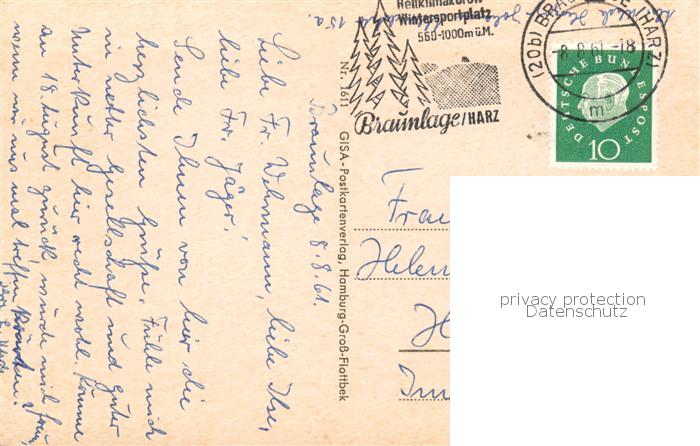 Heilklimakurort
Wintersportplatz
560-1000m ü.M.
Braunlage/HARZ
(20b) BRAUNLAGE (HARZ)
-8.8.61.-18
m
DEUTSCHE BUNDESPOST
10
Nr. 1611
GISA-Postkartenverlag, Hamburg-Groß-Flottbek
Braunlage 8.8.61.
Liebe Fr. Wehrmann, liebe Ilse,
liebe Fr. Jäger!
Sende Ihnen von hier die
herzlichsten Grüße. Fühle mich
in netter Gesellschaft und guter
Unterkunft hier recht wohl. Komme
am 18. August zurück würde mich freuen,
wenn wir uns mal treffen könnten.
Frau
Helen
H
privacy protection
Datenschutz